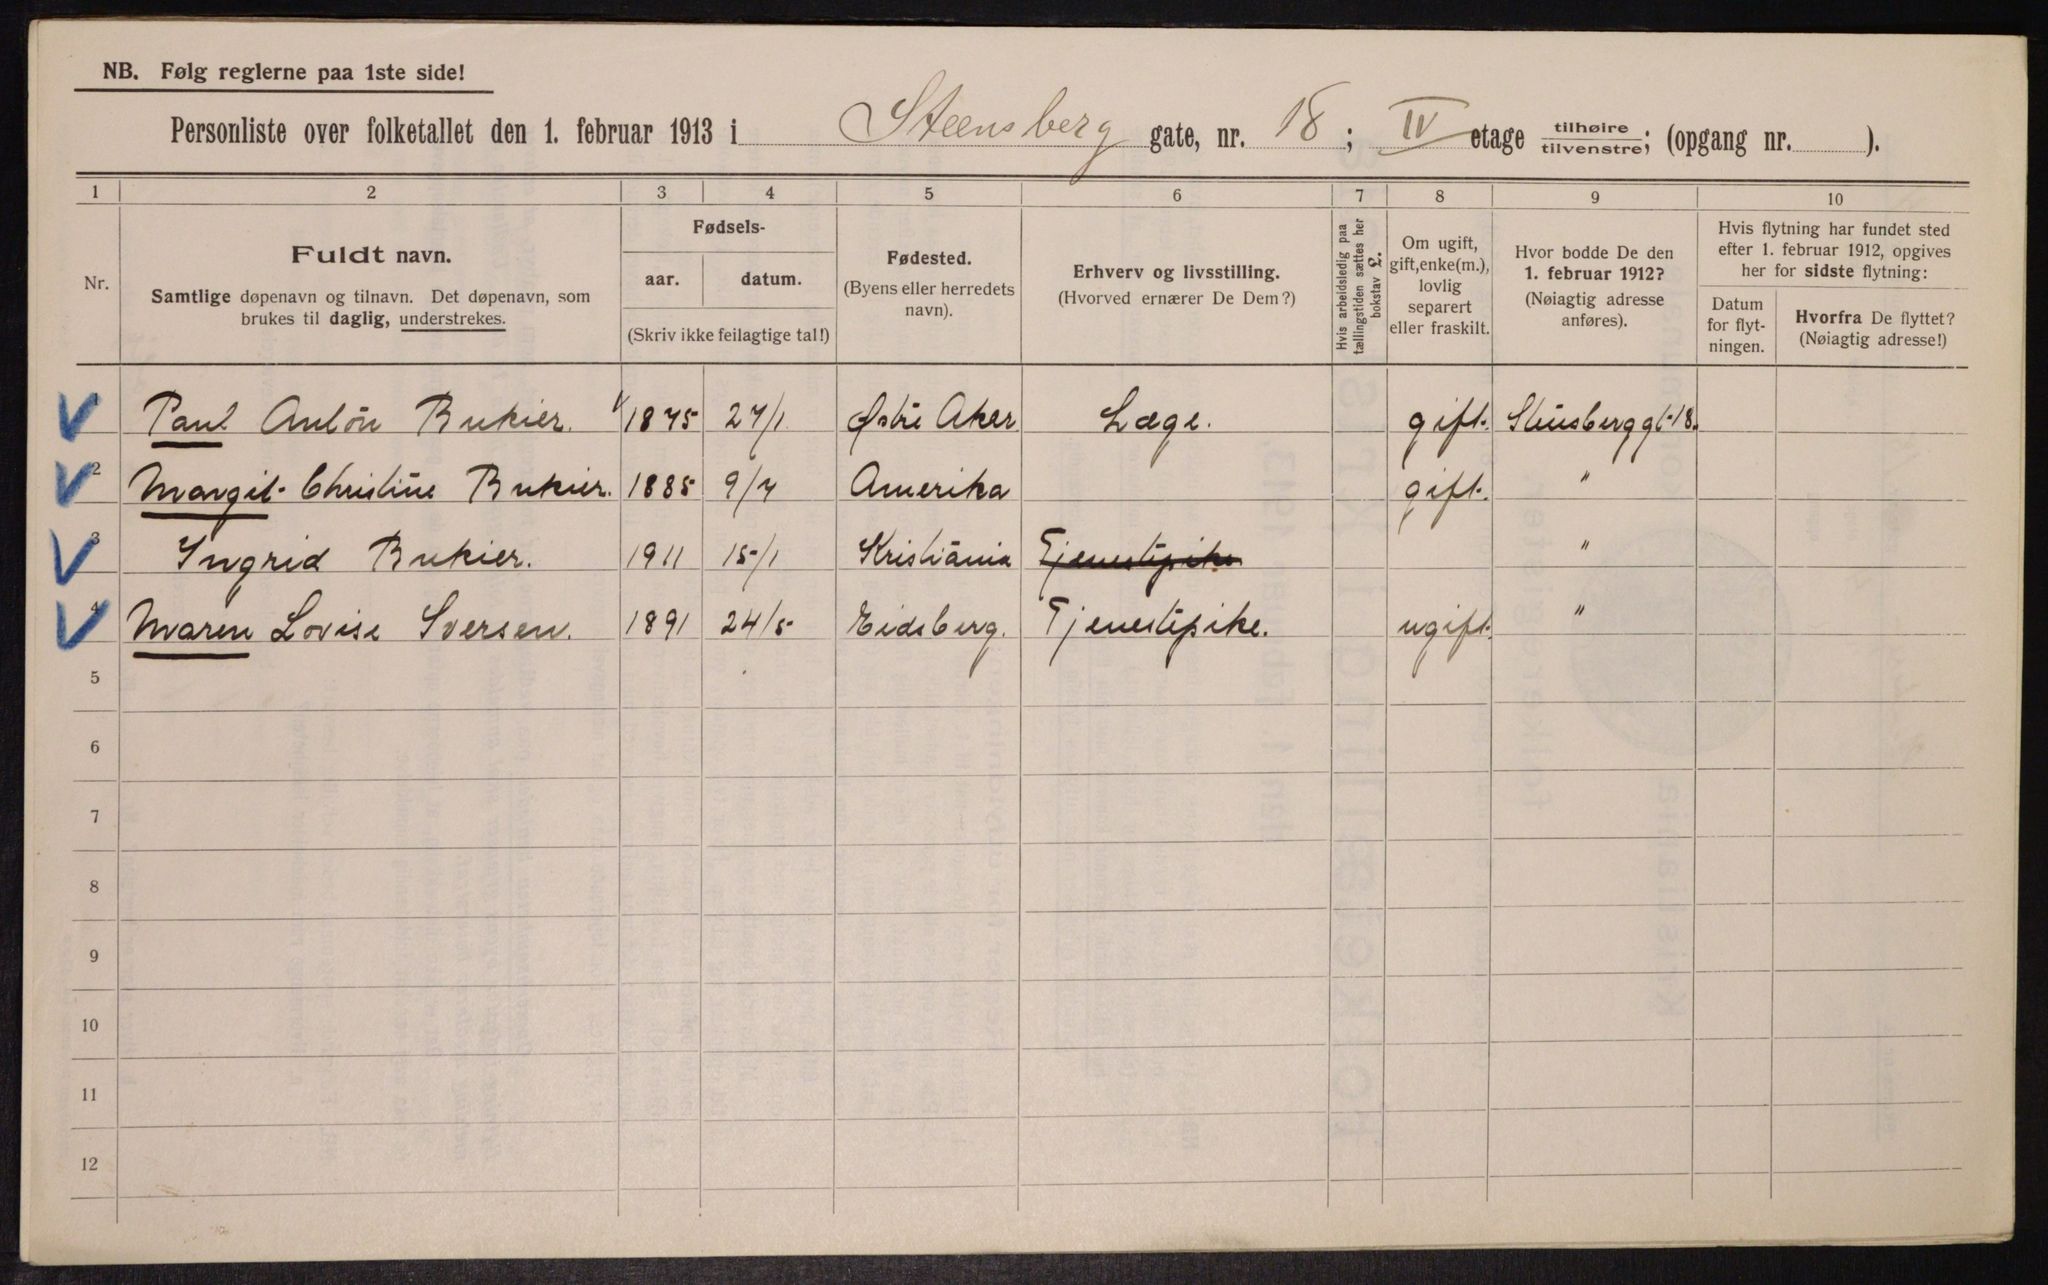 NB. Følg reglerne paa 1ste side!
Personliste over folketallet den 1. februar 1913 i Steensberg gate, nr. 18; IV etage tilhøire / tilvenstre; (opgang nr. ).
1 2 3 4 5 6 7 8 9 10
Nr.
Fuldt navn.
Samtlige døpenavn og tilnavn. Det døpenavn, som
brukes til daglig, understrekes.
Fødsels-
aar. datum.
(Skriv ikke feilagtige tal!)
Fødested.
(Byens eller herredets
navn).
Erhverv og livsstilling.
(Hvorved ernærer De Dem?)
Hvis arbeidsledig paa
tællingstiden sættes her
bokstav L.
Om ugift,
gift, enke(m.),
lovlig
separert
eller fraskilt.
Hvor bodde De den
1. februar 1912?
(Nøiagtig adresse
anføres).
Hvis flytning har fundet sted
efter 1. februar 1912, opgives
her for sidste flytning:
Datum
for flyt-
ningen.
Hvorfra De flyttet?
(Nøiagtig adresse!)
Paul Anton Bukier. 1875 27/1 Østre Aker Læge. gift. Stensberggt. 18.
2 Margit Christine Bukier. 1885 9/7 Amerika gift. "
3 Ingrid Bukier. 1911 15/1 Kristiania Tjenestepike "
4 Maren Lovise Iversen. 1891 24/5 Eidsberg. Tjenestepike. ugift. "
5
6
7
8
9
10
11
12